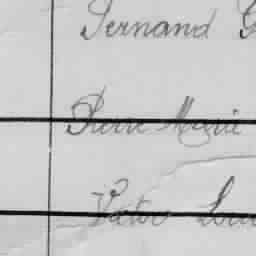 Fernand
Pierre Marie
Victor Loui